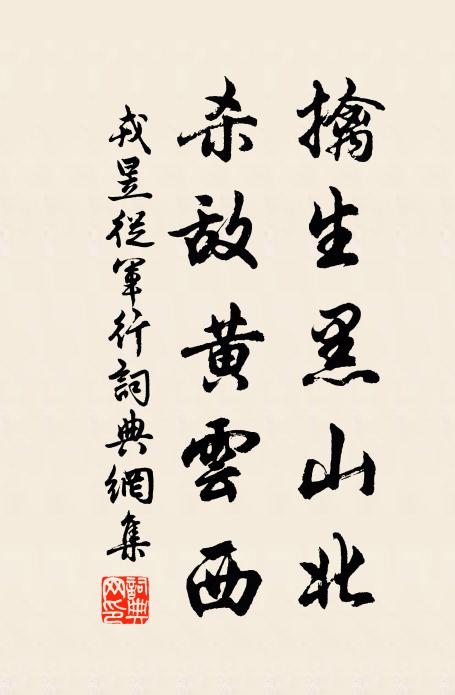 擒生黑山北
杀敌黄雲西
戎昱從軍行詞典網集
詞典網印